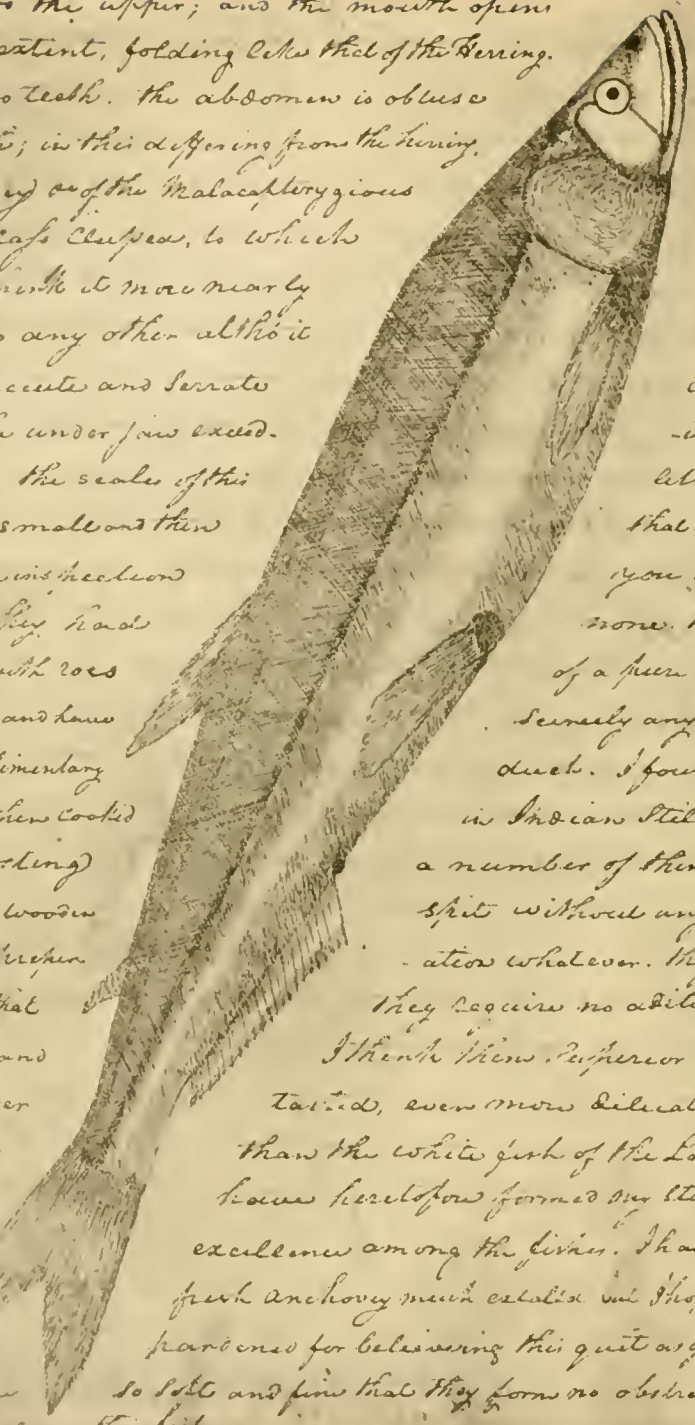 the upper; and the mouth opens
extent, folding like that of the Herring.
teeth. the abdomen is obtuse
; in this differing from the herring,
of the Malacapterygious
Clupea, to which
think it more nearly
any other altho it
accute and serrate
under jaw exceed-
the scales of this
small and thin
inspection
they had
with roes
and have
alimentary
when cooked
wooden
that
and
let
that
you
none.
of a pure
scercely any
duct. I fou
in Indian stil
a number of them
spit without any
-ation whatever. th
they require no adit
I think them superior
tasted, even more dilicat
than the white fish of the La
have heretofore formed my sta
excellence among the fishes. I ha
fresh anchovey much extold but I ho
pardoned for believing this quit as g
so soft and fine that they form no obstre